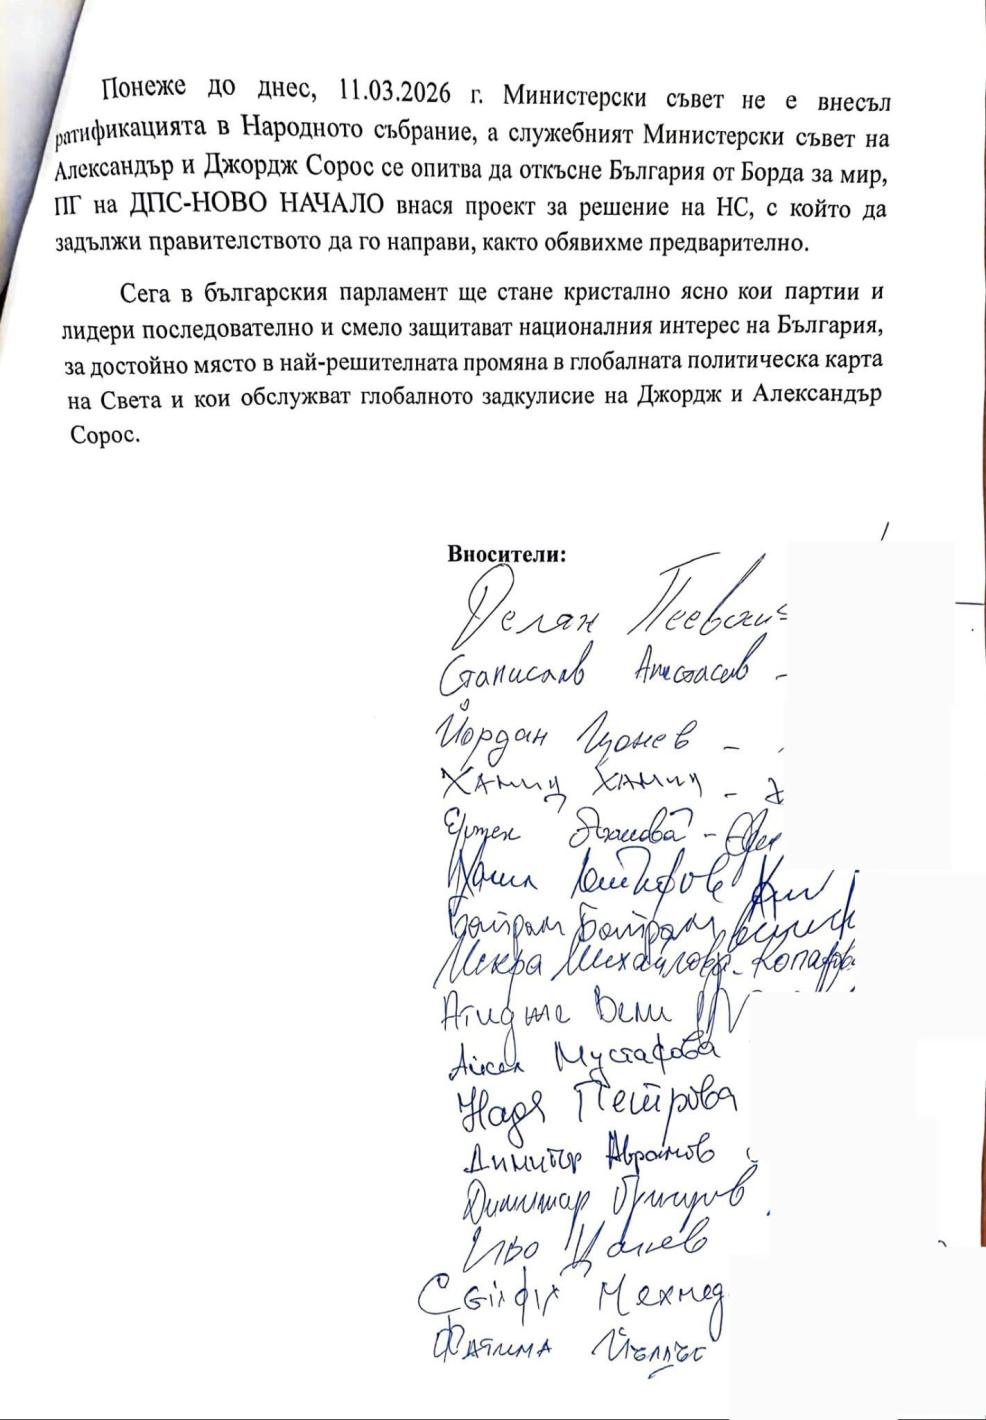 Понеже до днес, 11.03.2026 г. Министерски съвет не е внесъл
ратификацията в Народното събрание, а служебният Министерски съвет на
Александър и Джордж Сорос се опитва да откъсне България от Борда за мир,
ПГ на ДПС-НОВО НАЧАЛО внася проект за решение на НС, с който да
задължи правителството да го направи, както обявихме предварително.
Сега в българския парламент ще стане кристално ясно кои партии и
лидери последователно и смело защитават националния интерес на България,
за достойно място в най-решителната промяна в глобалната политическа карта
на Света и кои обслужват глобалното задкулисие на Джордж и Александър
Сорос.
Вносители:
Делян Пеевски -
Станислав Анастасов -
Йордан Цонев -
Хамид Хамид -
Байрам Байрам
Искра Михайлова-Копарова
Атидже Вели
Айсел Мустафова
Надя Петрова
Димитър Аврамов
Димитър
Сейфи Мехмед
Фатима Йълдъз